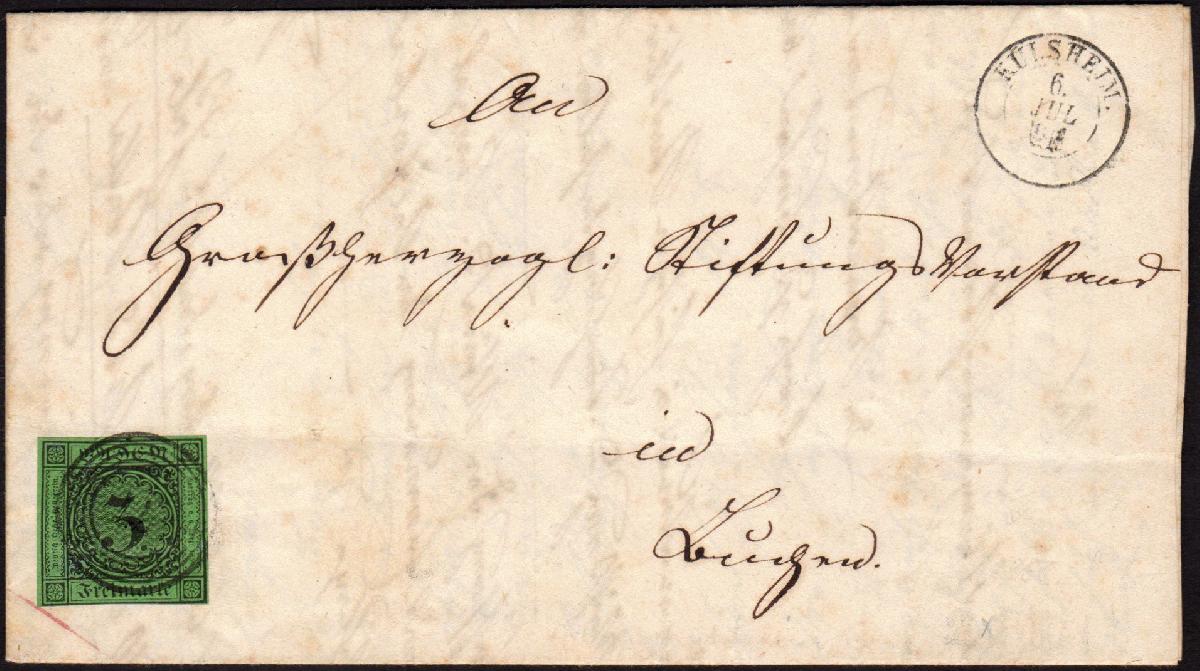 An
KÜLSHEIM.
6.
JUL
Großherzogl: Stiftungs Vorstand
in
Buchen.
BADEN
3
Freimarke